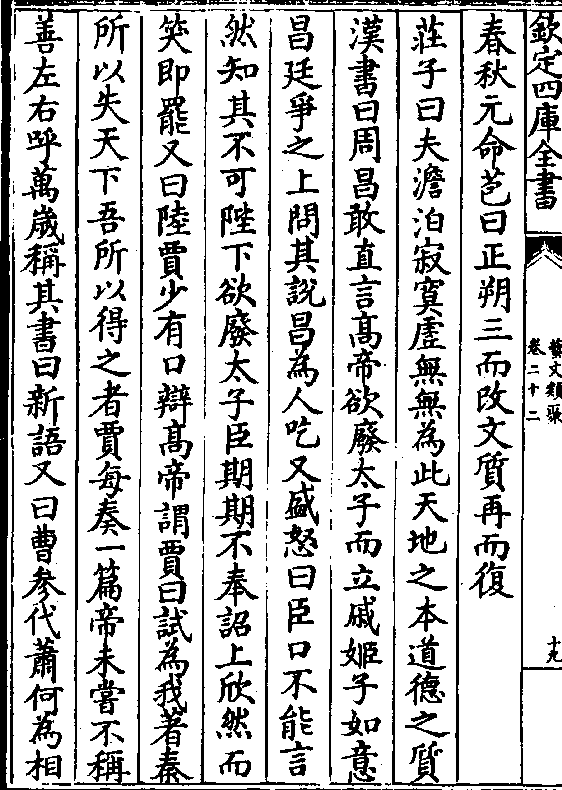 欽定四庫全書
藝文類聚
卷二十二
十九
春秋元命苞曰正朔三而改文質再而復
莊子曰夫澹泊寂寞虛無無為此天地之本道德之質
漢書曰周昌敢直言髙帝欲廢太子而立戚姬子如意
昌廷爭之上問其説昌為人吃又盛怒曰臣口不能言
然知其不可陛下欲廢太子臣期期不奉詔上欣然而
笑即罷又曰陸賈少有口辯髙帝謂賈曰試為我著秦
所以失天下吾所以得之者賈每奏一篇帝未嘗不稱
善左右呼萬歳稱其書曰新語又曰曹參代蕭何為相